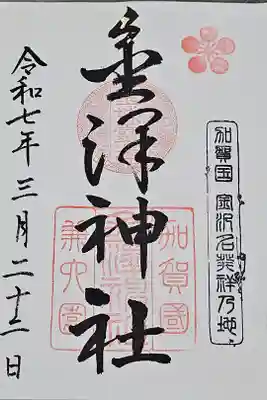 加賀国 金沢名発祥乃地
金澤神社
加賀國
兼六園
令和七年三月二十二日